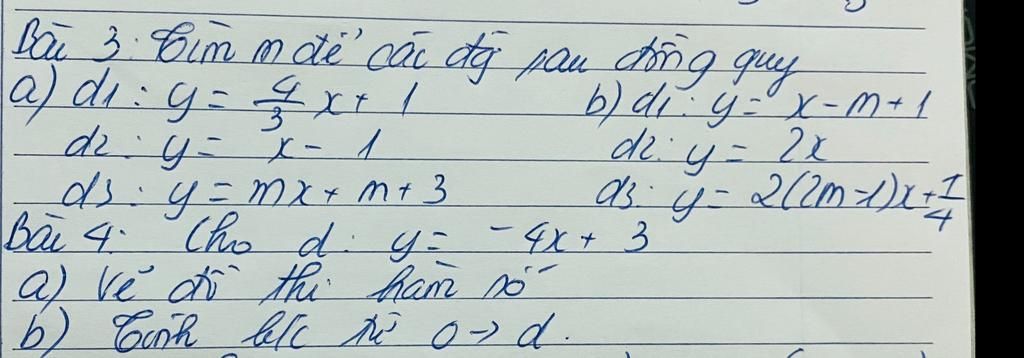 Bài 3: Tìm m để các đg sau đồng quy
a) d1: y = 4/3 x + 1 b) d1: y = x - m + 1
d2: y = x - 1 d2: y = 2x
d3: y = mx + m + 3 d3: y = 2(2m-1)x + 1/4
Bài 4: Cho d: y = -4x + 3
a) Vẽ đồ thị hàm số
b) Tính k/c từ O → d.